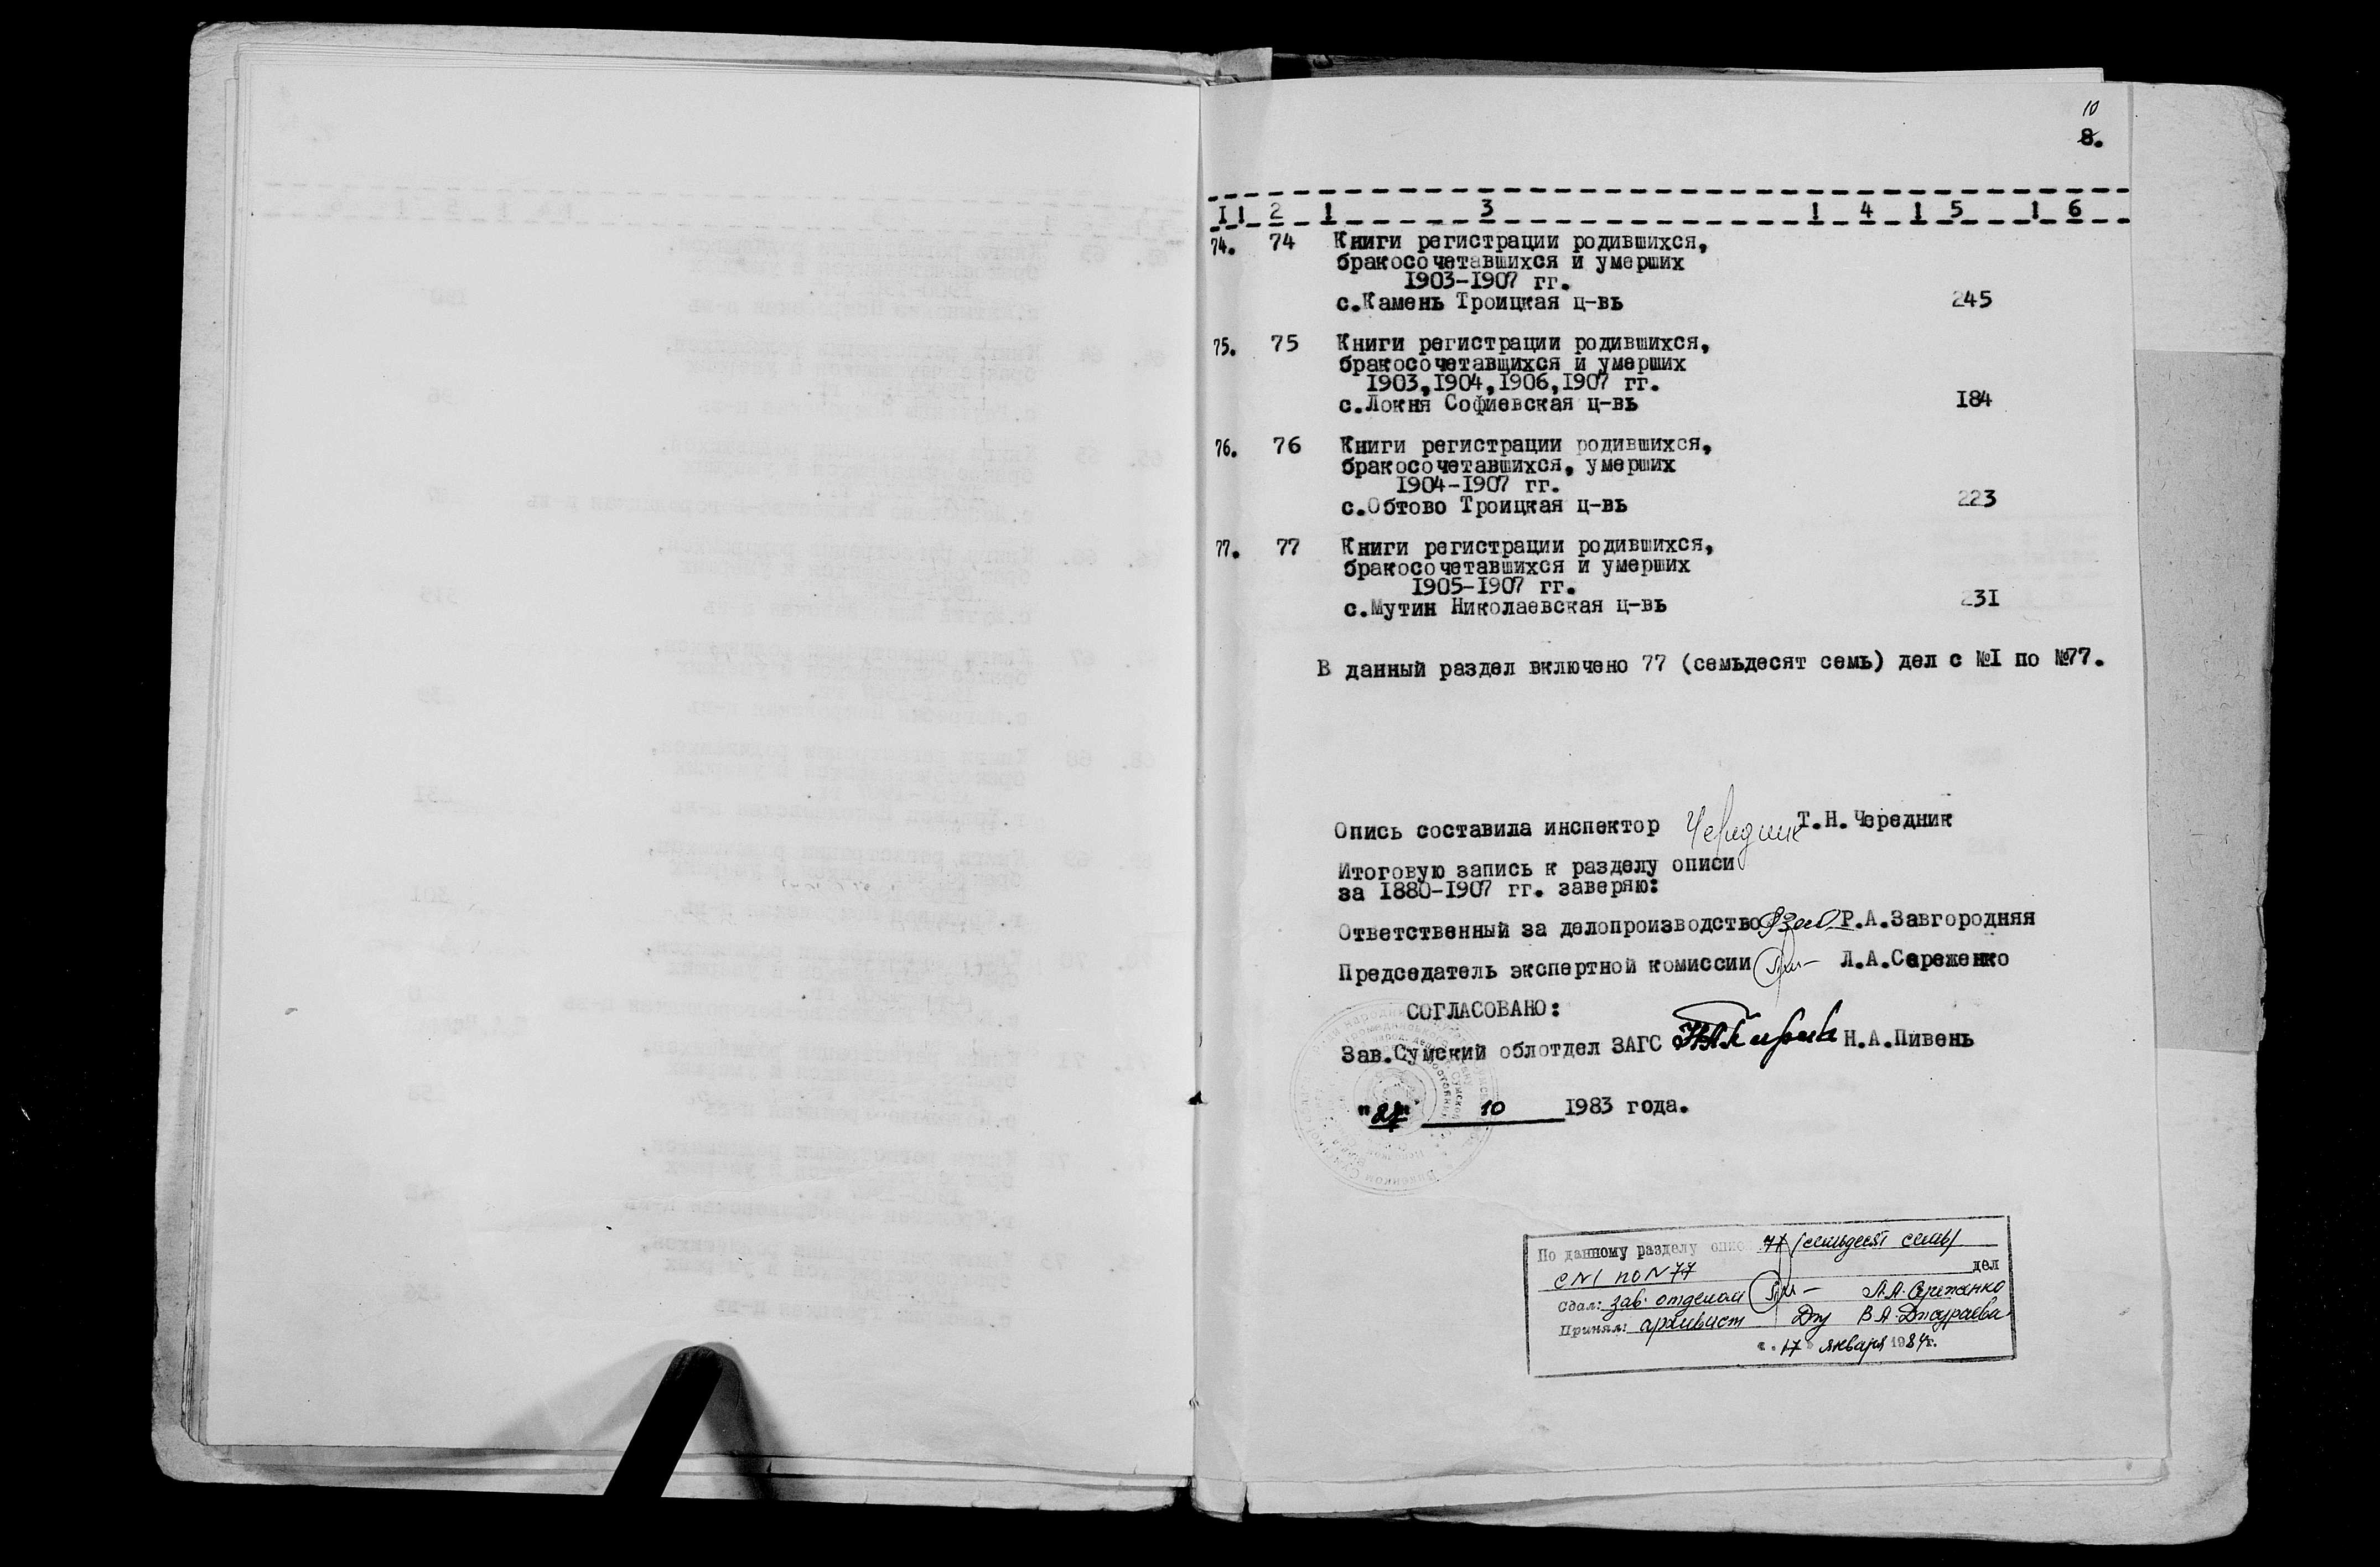 10
8.
I 1 2 1 3 1 4 1 5 1 6
74. 74 Книги регистрации родившихся,
бракосочетавшихся и умерших
1903-1907 гг.
с.Камень Троицкая ц-вь 245
75. 75 Книги регистрации родившихся,
бракосочетавщихся и умерших
1903,1904,1906,1907 гг.
с.Локня Софиевская ц-вь 184
76. 76 Книги регистрации родившихся,
бракосочетавшихся, умерших
1904-1907 гг.
с.Обтово Троицкая ц-вь 223
77. 77 Книги регистрации родившихся,
бракосочетавшихся и умерших
1905-1907 гг.
с.Мутин Николаевская ц-вь 231
В данный раздел включено 77 (семьдесят семь) дел с №1 по №77.
Опись составила инспектор Чередник Т.Н.Чередник
Итоговую запись к разделу описи
за 1880-1907 гг. заверяю:
Ответственный за делопроизводство Р.А.Завгородняя
Председатель экспертной комиссии Л.А.Сереженко
СОГЛАСОВАНО:
Зав.Сумский облотдел ЗАГС Н.А.Пивень
"27" 10 1983 года.
По данному разделу описи 77 (семьдесят семь)
с N1 по N77 дел
Сдал: зав. отделом Л.А. Сереженко
Принял: архивист В.А. Джураева
" 17 " января 1984г.